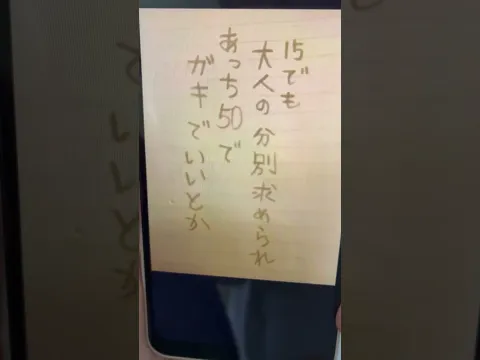 15でも
大人の分別求められ
あっち50で
ガキでいいとか